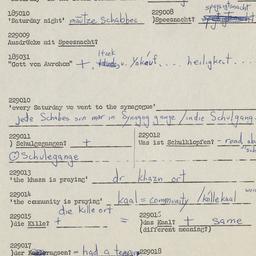 185010 229008
'Saturday night' maätze Schabbes )Speesnacht?
229009
Ausdrücke mit Speesnacht?
185031
"Gott von Avrohom" + Itzek u. Yokeuf.... heiligkeit....
229010
'every Saturday we went to the synagogue'
jede Schabes sin mer in Synagog gange / in die Schulgang
229011 229012
) Schulegangen? + Was ist Schulklopfen? - read ab
Schulegange
229013
'the khasn is praying' dr khazn ort
229014
'the community is praying' kaal = community / kille kaal
die kille ort
229015 229016
)die Kille? + = )das Kaal? + same
(different meaning?)
229017 229018
)der had a